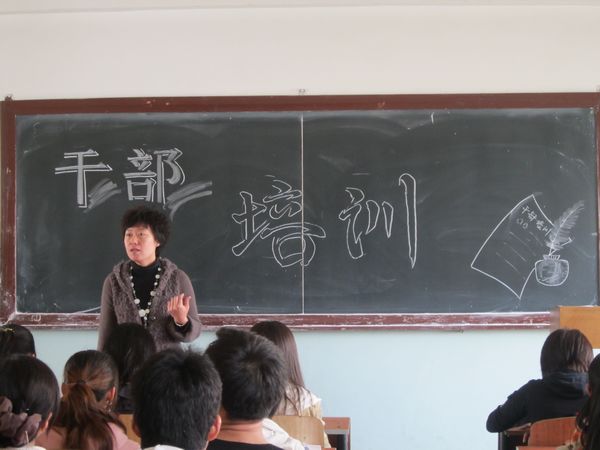 干部
培训
干部培训